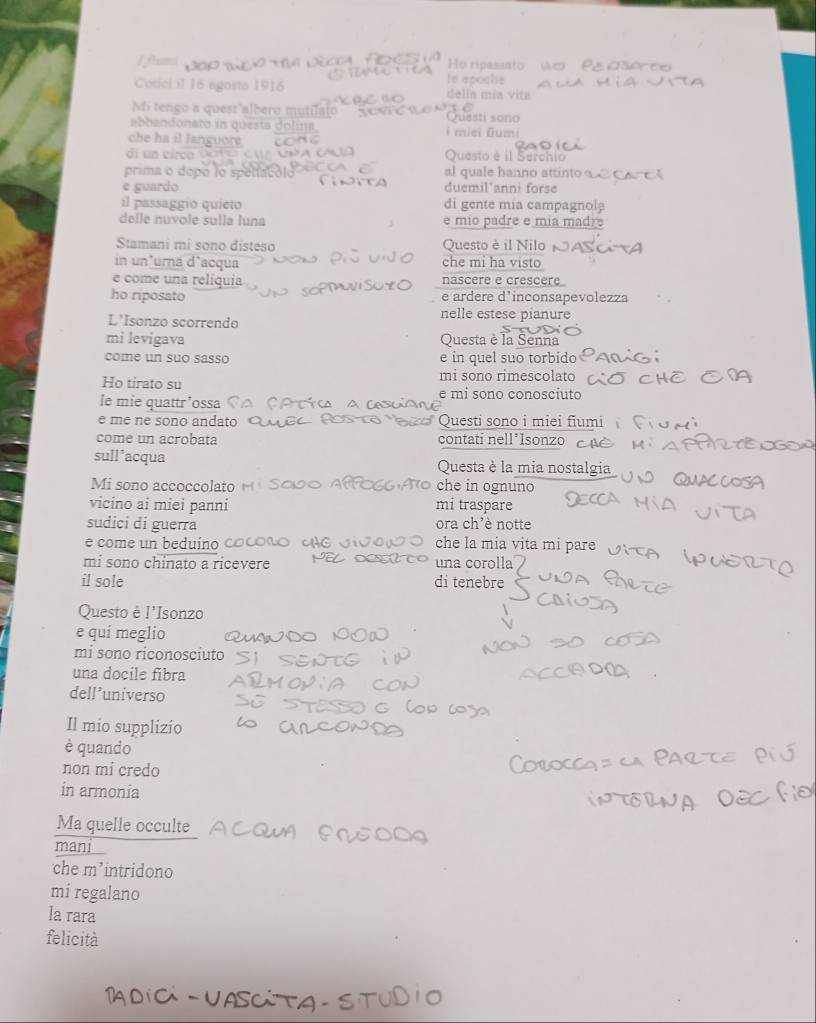 I fiumi NON RICONTRA NELLA POESIA
ERMETICA
Cotici il 16 agosto 1916
Mi tengo a quest'albero mutilato ALBERO
abbandonato in questa dolina
che ha il languore COME
di un circo UNA
prima o dopo lo spettacolo FINITA
e guardo
il passaggio quieto
delle nuvole sulla luna
Stamani mi sono disteso
in un'urna d'acqua NON PIÙ VIVO
e come una reliquia
ho riposato UN SOPRAVVISUTO
L'Isonzo scorrendo
mi levigava
come un suo sasso
Ho tirato su
le mie quattr'ossa FA FATICA A LASCIARE
e me ne sono andato QUEL POSTO
come un acrobata
sull'acqua
Mi sono accoccolato MI SONO APPOGGIATO
vicino ai miei panni
sudici di guerra
e come un beduino COLORO CHE VIVONO
mi sono chinato a ricevere NEL DESERTO
il sole
Questo è l'Isonzo
e qui meglio QUANDO NON
mi sono riconosciuto SI SENTE IN
una docile fibra ARMONIA CON
dell'universo SÉ STESSO E CON COSA
Il mio supplizio LO CIRCONDA
è quando
non mi credo
in armonia
Ma quelle occulte ACQUA FREDDA
mani
che m'intridono
mi regalano
la rara
felicità
Ho ripassato HO PENSATO
le epoche ALLA MIA VITA
della mia vita
Questi sono
i miei fiumi
RADICI
Questo è il Serchio
al quale hanno attinto
duemil'anni forse
di gente mia campagnola
e mio padre e mia madre
Questo è il Nilo NASCITA
che mi ha visto
nascere e crescere
e ardere d'inconsapevolezza
nelle estese pianure
STUDIO
Questa è la Senna
e in quel suo torbido PARIGI
mi sono rimescolato CIÒ CHE ERA
e mi sono conosciuto
Questi sono i miei fiumi I FIUMI
contati nell'Isonzo CHE MI APPARTENGON
Questa è la mia nostalgia
che in ognuno UN QUALCOSA
mi traspare DELLA MIA VITA
ora ch'è notte
che la mia vita mi pare VITA INCERTO
una corolla
di tenebre UNA PARTE
CHIUSA
NON SO COSA
ACCADRA
COROLLA = LA PARTE PIÙ
INTERNA DEL FIO
RADICI - NASCITA - STUDIO